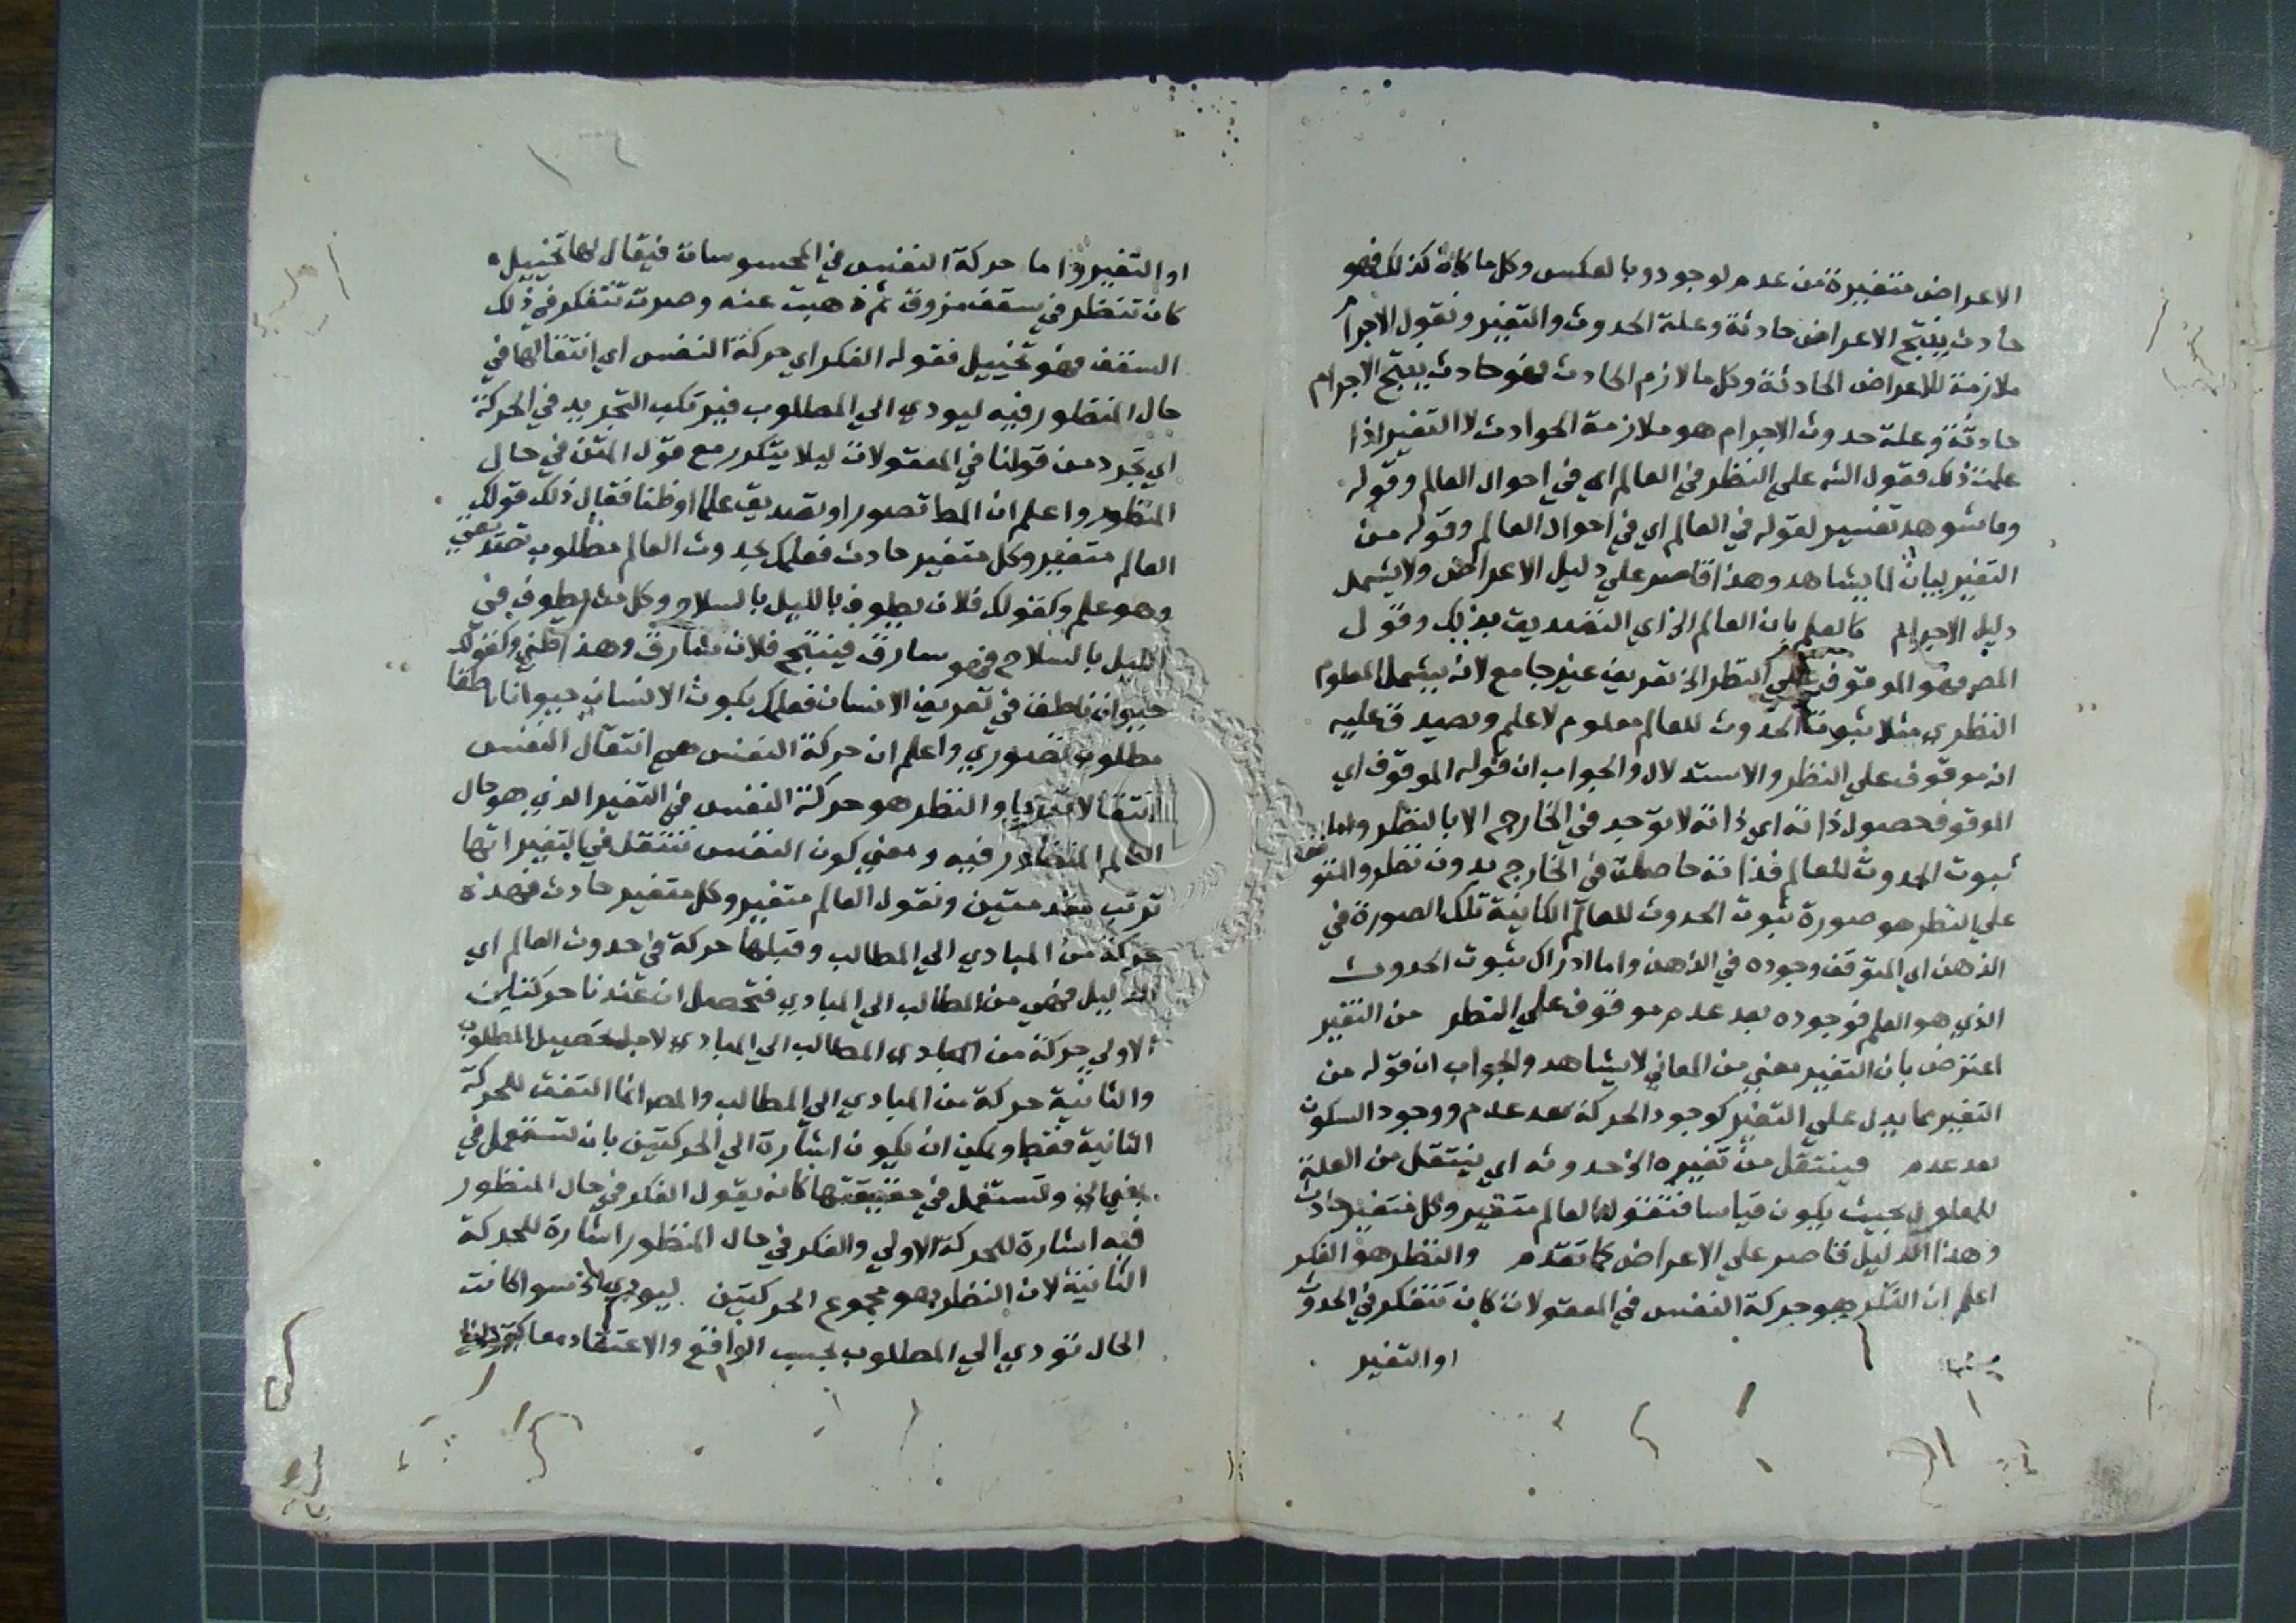 الاعراض متغيرة من عدم لوجود وبالعكس وكل ما كان كذلك فهو
حادث ينتج الاعراض حادثة وعلة الحدوث والتغير ونقول الاجرام
ملازمة للاعراض الحادثة وكل ما لازم الحادث فهو حادث ينتج الاجرام
حادثة وعلة حدوث الاجرام هو ملازمة الحوادث لا التغير اذا
علمت ذلك فقول الش علي النظر في العالم اي في احوال العالم وقوله
وما شوهد تفسير لقوله في العالم اي في احوال العالم وقوله من
التغير بيان لما يشاهد وهذا قاصر علي دليل الاعراض ولا يشمل
دليل الاجرام كالعلم بان العالم الخ اي التصديق بذلك وقول
المص فهو الموقوف علي النظر الخ تعريف غير جامع لانه يشمل المعلوم
النظري مثلا ثبوت الحدوث للعالم معلوم لا علم ويصدق عليه
انه موقوف علي النظر والاستدلال والجواب ان قوله الموقوف اي
الموقوف حصول ذاته اي ذاته لا توجد في الخارج الا بالنظر واما
ثبوت الحدوث للعالم فذاته حاصلة في الخارج بدون نظر والمتوقف
علي النظر هو صورة ثبوت الحدوث للعالم الكاينة تلك الصورة في
الذهن اي المتوقف وجوده في الذهن واما ادراك ثبوت الحدوث
الذي هو العلم فوجوده بعد عدم موقوف علي النظر من التغير
اعترض بان التغير معني من المعاني لا يشاهد والجواب ان قوله من
التغير مما يدل علي التغير كوجود الحركة بعد عدم ووجود السكون
بعد عدم فينتقل من تغيره الخ حدوثه اي ينتقل من العلة
للمعلول بحيث يكون قياسا فتقول العالم متغير وكل متغير حادث
وهذا الدليل قاصر علي الاعراض كما تقدم والنظر هو الفكر
اعلم ان الفكر هو حركة النفس في المعقولات كان تتفكر في الحدوث
او التغير
او التغير واما حركة النفس في المحسوسات فيقال لها تخييل
كان تنظر في سقف مزوق ثم ذهبت عنه وصرت تتفكر في ذلك
السقف فهو تخييل فقوله الفكر اي حركة النفس اي انتقالها في
حال المنظور فيه ليودي الي المطلوب فيرتكب التجريد في الحركة
اي تجرد من قولنا في المعقولات ليلا يتكرر مع قول المتن في حال
المنظور واعلم ان المط تصور او تصديق علما او ظنا فقال ذلك قولك
العالم متغير وكل متغير حادث فعلمك بحدوث العالم مطلوب تصديقي
وهو علم وكقولك فلان يطوف بالليل بالسلاح وكل من يطوف في
الليل بالسلاح فهو سارق فينتج فلان سارق وهذا ظني وكقولك
حيوان ناطق في تعريف الانسان فعلمك بكون الانسان حيوانا ناطقا
مطلوب تصوري واعلم ان حركة النفس هي انتقال النفس
انتقالا تدريجيا والنظر هو حركة النفس في التغير الذي هو حال
العالم المنظور فيه ومعني كون النفس تنتقل في التغير انها
ترتب مقدمتين وتقول العالم متغير وكل متغير حادث فهذه
حركة من المبادي الي المطالب وقبلها حركة في حدوث العالم اي
الدليل فهي من المطالب الي المبادي فتحصل ان عندنا حركتين
الاولي حركة من المبادي المطالب الي المبادي لاجل تحصيل المطلوب
والثانية حركة من المبادي الي المطالب والمص انما التفت للحركة
الثانية فقط ويمكن ان يكون اشارة الي الحركتين بان تستعمل في
وتستعمل في حقيقتها كانه يقول الفكر في حال المنظور
فيه اشارة للحركة الاولي والفكر في حال المنظور اشارة للحركة
الثانية لان النظر هو مجموع الحركتين ليودي الخ سوا كانت
الحال تودي الي المطلوب بحسب الواقع والاعتقاد معا